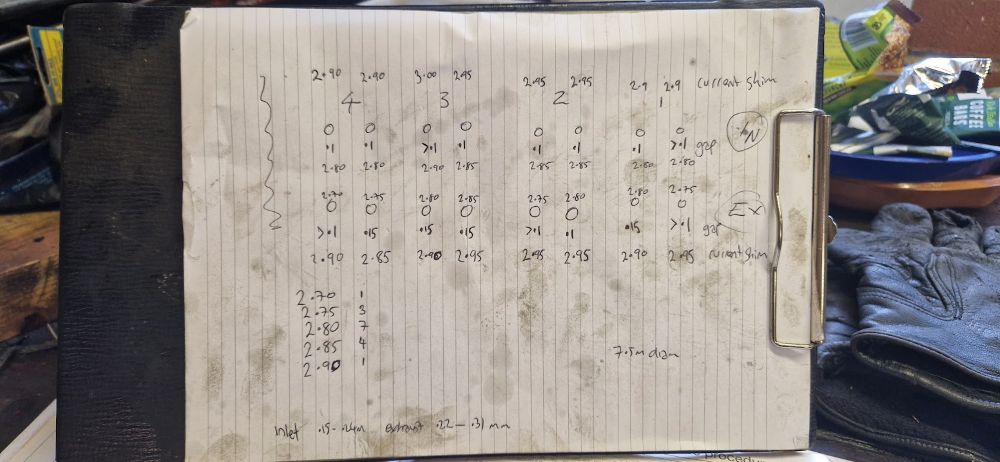 2.90 2.90 3.00 2.95 2.95 2.95 2.9 2.9 current shim
4 3 2 1
0 0 0 0 0 0 0 0 IN
.1 .1 >.1 .1 .1 .1 .1 >.1 gap
2.80 2.80 2.90 2.85 2.85 2.85 2.80 2.80
2.70 2.75 2.80 2.80 2.75 2.80 2.80 2.75
0 0 0 0 0 0 0 0 Ex
>.1 .15 .15 .15 >.1 .1 .15 >.1 gap
2.90 2.85 2.90 2.95 2.95 2.95 2.90 2.95 current shim
2.70 1
2.75 3
2.80 7
2.85 4
2.90 1
7.5m diam
inlet .15 - .24m exhaust .22 - .31 mm
COFFEE
BARS
procedu